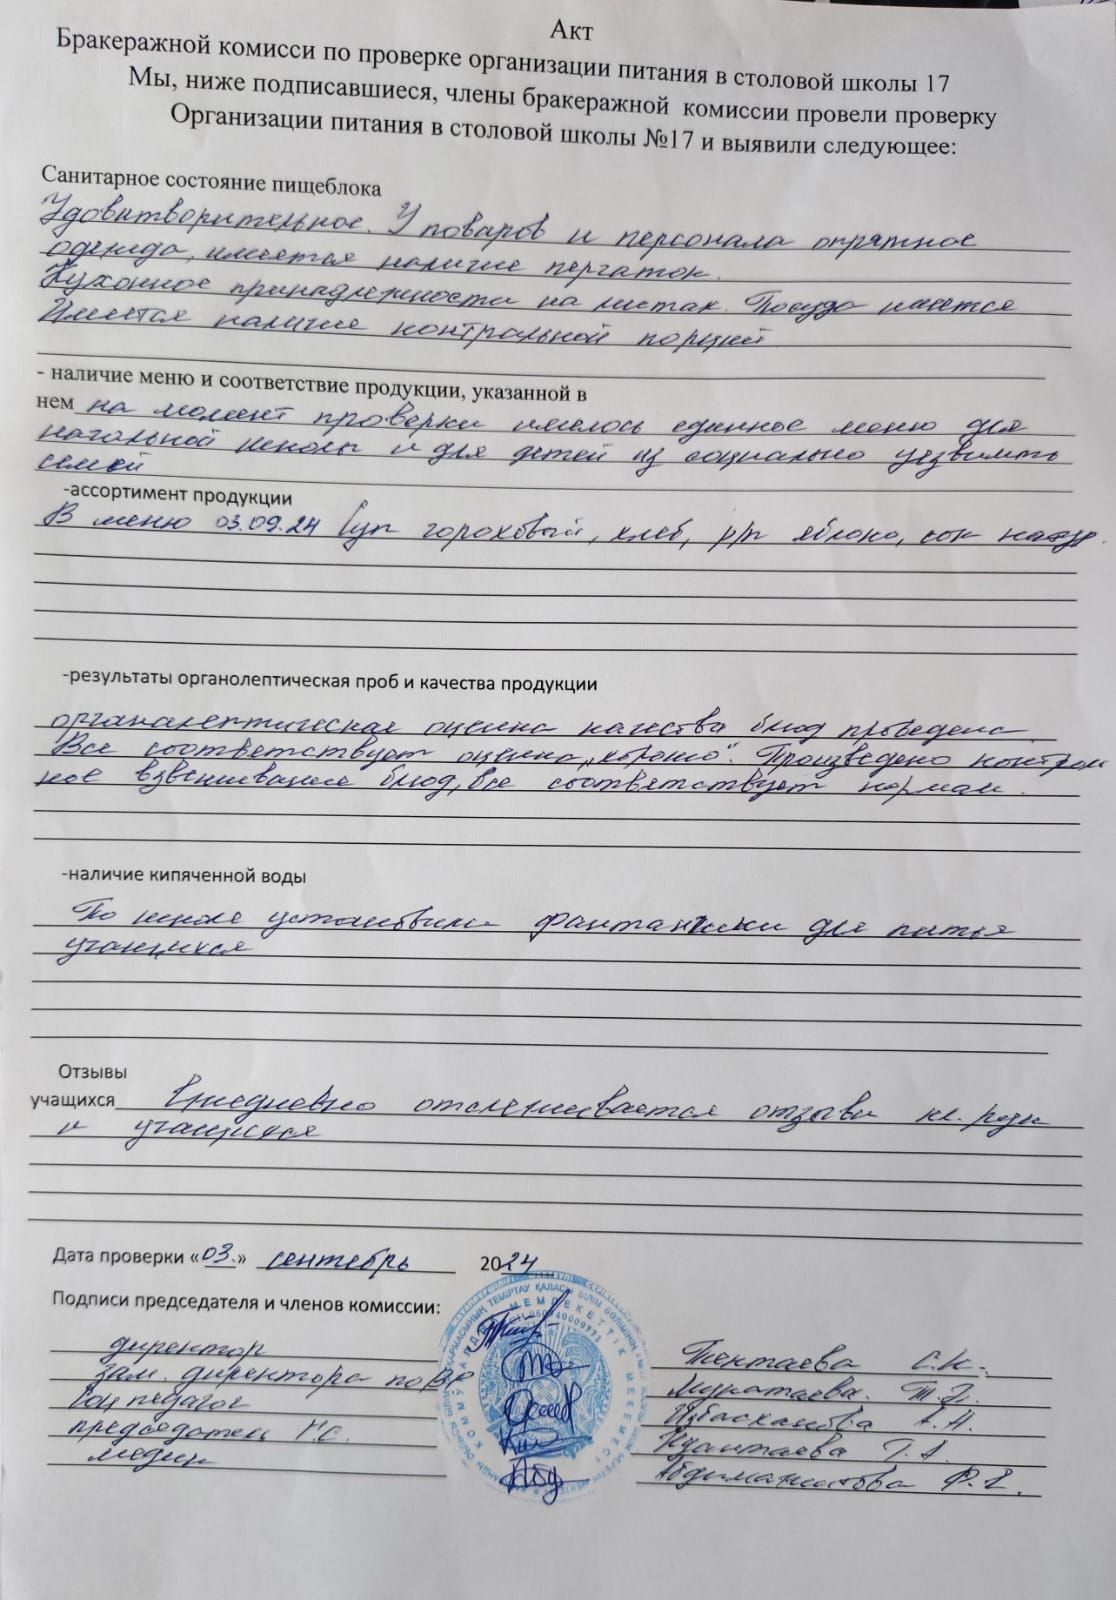 Акт
Бракеражной комисси по проверке организации питания в столовой школы 17
Мы, ниже подписавшиеся, члены бракеражной комиссии провели проверку
Организации питания в столовой школы №17 и выявили следующее:
Санитарное состояние пищеблока
Удовитворительное. У поваров и персонала опрятное
одежда, имеется наличие перчаток.
Кухонное принадлежности на местах. Посуда имеется
Имеется наличие контральной порций
- наличие меню и соответствие продукции, указанной в
нем на момент проверки имелось единное меню для
начальной школы и для детей из социально уязвимть
семей
-ассортимент продукции
В меню 03.09.24 Суп гороховый, хлеб, р/п яблоко, сок натур.
-результаты органолептическая проб и качества продукции
органалептическая оценка качества блюд проведена.
Все соответствует оценка „хорошо". Произведено контроль
ное взвешивание блюд, все соответствует нормам.
-наличие кипяченной воды
По школе установили фантанчики для питья
учащихся
Отзывы
учащихся Ежедневно отслеживается отзывы кл. рук
и учащихся
Дата проверки «03.» сентябрь 2024
Подписи председателя и членов комиссии:
директор Тентаева С.К.
зам. директора по ВР Муратаева
Соц педагог Избасханова А.Н.
председатель Р.С. Куантаева Г.А.
медик Абдимажитова Ф.Е.